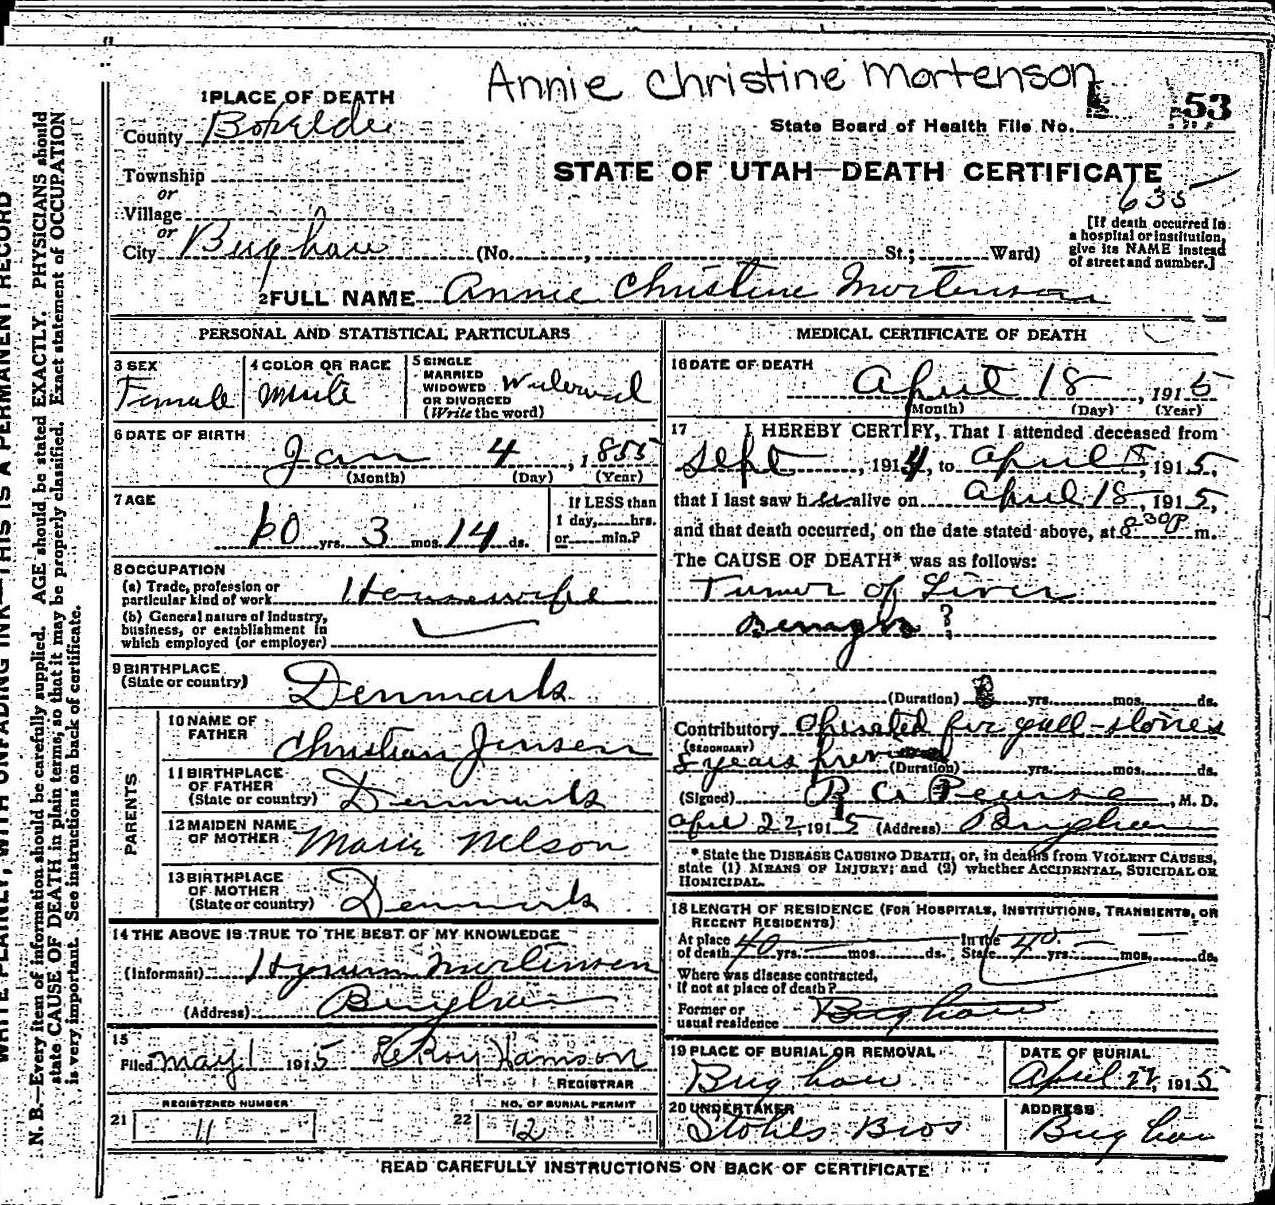 Annie Christine Mortenson
1 PLACE OF DEATH
County Boxelder
State Board of Health File No. 53
STATE OF UTAH—DEATH CERTIFICATE
635
Township
or
Village
or
City Brigham (No. , St.; Ward)
[If death occurred in
a hospital or institution,
give its NAME instead
of street and number.]
2 FULL NAME Annie Christine Mortenson
PERSONAL AND STATISTICAL PARTICULARS
3 SEX
Female
4 COLOR OR RACE
White
5 SINGLE
MARRIED
WIDOWED
OR DIVORCED
(Write the word)
Widowed
6 DATE OF BIRTH
Jan 4, 1855
(Month) (Day) (Year)
7 AGE
60 yrs. 3 mos. 14 ds.
If LESS than
1 day, hrs.
or min.?
8 OCCUPATION
(a) Trade, profession or
particular kind of work Housewife
(b) General nature of industry,
business, or establishment in
which employed (or employer)
9 BIRTHPLACE
(State or country) Denmark
PARENTS
10 NAME OF
FATHER Christian Jensen
11 BIRTHPLACE
OF FATHER
(State or country) Denmark
12 MAIDEN NAME
OF MOTHER Marie Nelson
13 BIRTHPLACE
OF MOTHER
(State or country) Denmark
14 THE ABOVE IS TRUE TO THE BEST OF MY KNOWLEDGE
(Informant) Hyrum Mortensen
(Address) Brigham
15
Filed May 1 1915 LeRoy Hamson
REGISTRAR
21 REGISTERED NUMBER
11
22 NO. OF BURIAL PERMIT
12
MEDICAL CERTIFICATE OF DEATH
16 DATE OF DEATH
April 18, 1915
(Month) (Day) (Year)
17 I HEREBY CERTIFY, That I attended deceased from
Sept, 1914, to April 18, 1915,
that I last saw her alive on April 18, 1915,
and that death occurred, on the date stated above, at 8 30 P m.
The CAUSE OF DEATH* was as follows:
Tumor of Liver
Benign?
(Duration) yrs. mos. ds.
Contributory Operated for gall-stones
(SECONDARY)
8 years (Duration) yrs. mos. ds.
(Signed) R A Pearse, M. D.
April 22, 1915 (Address) Brigham
* State the DISEASE CAUSING DEATH, or, in deaths from VIOLENT CAUSES,
state (1) MEANS OF INJURY; and (2) whether ACCIDENTAL, SUICIDAL OR
HOMICIDAL.
18 LENGTH OF RESIDENCE (FOR HOSPITALS, INSTITUTIONS, TRANSIENTS, OR
RECENT RESIDENTS)
At place
of death 40 yrs. mos. ds. In the
State 40 yrs. mos. ds.
Where was disease contracted,
if not at place of death?
Former or
usual residence Brigham
19 PLACE OF BURIAL OR REMOVAL
Brigham
DATE OF BURIAL
April 22, 1915
20 UNDERTAKER
Stohls Bros
ADDRESS
Brigham
READ CAREFULLY INSTRUCTIONS ON BACK OF CERTIFICATE
WRITE PLAINLY, WITH UNFADING INK—THIS IS A PERMANENT RECORD
N. B.—Every item of information should be carefully supplied. AGE should be stated EXACTLY. PHYSICIANS should
state CAUSE OF DEATH in plain terms, so that it may be properly classified. Exact statement of OCCUPATION
is very important. See instructions on back of certificate.